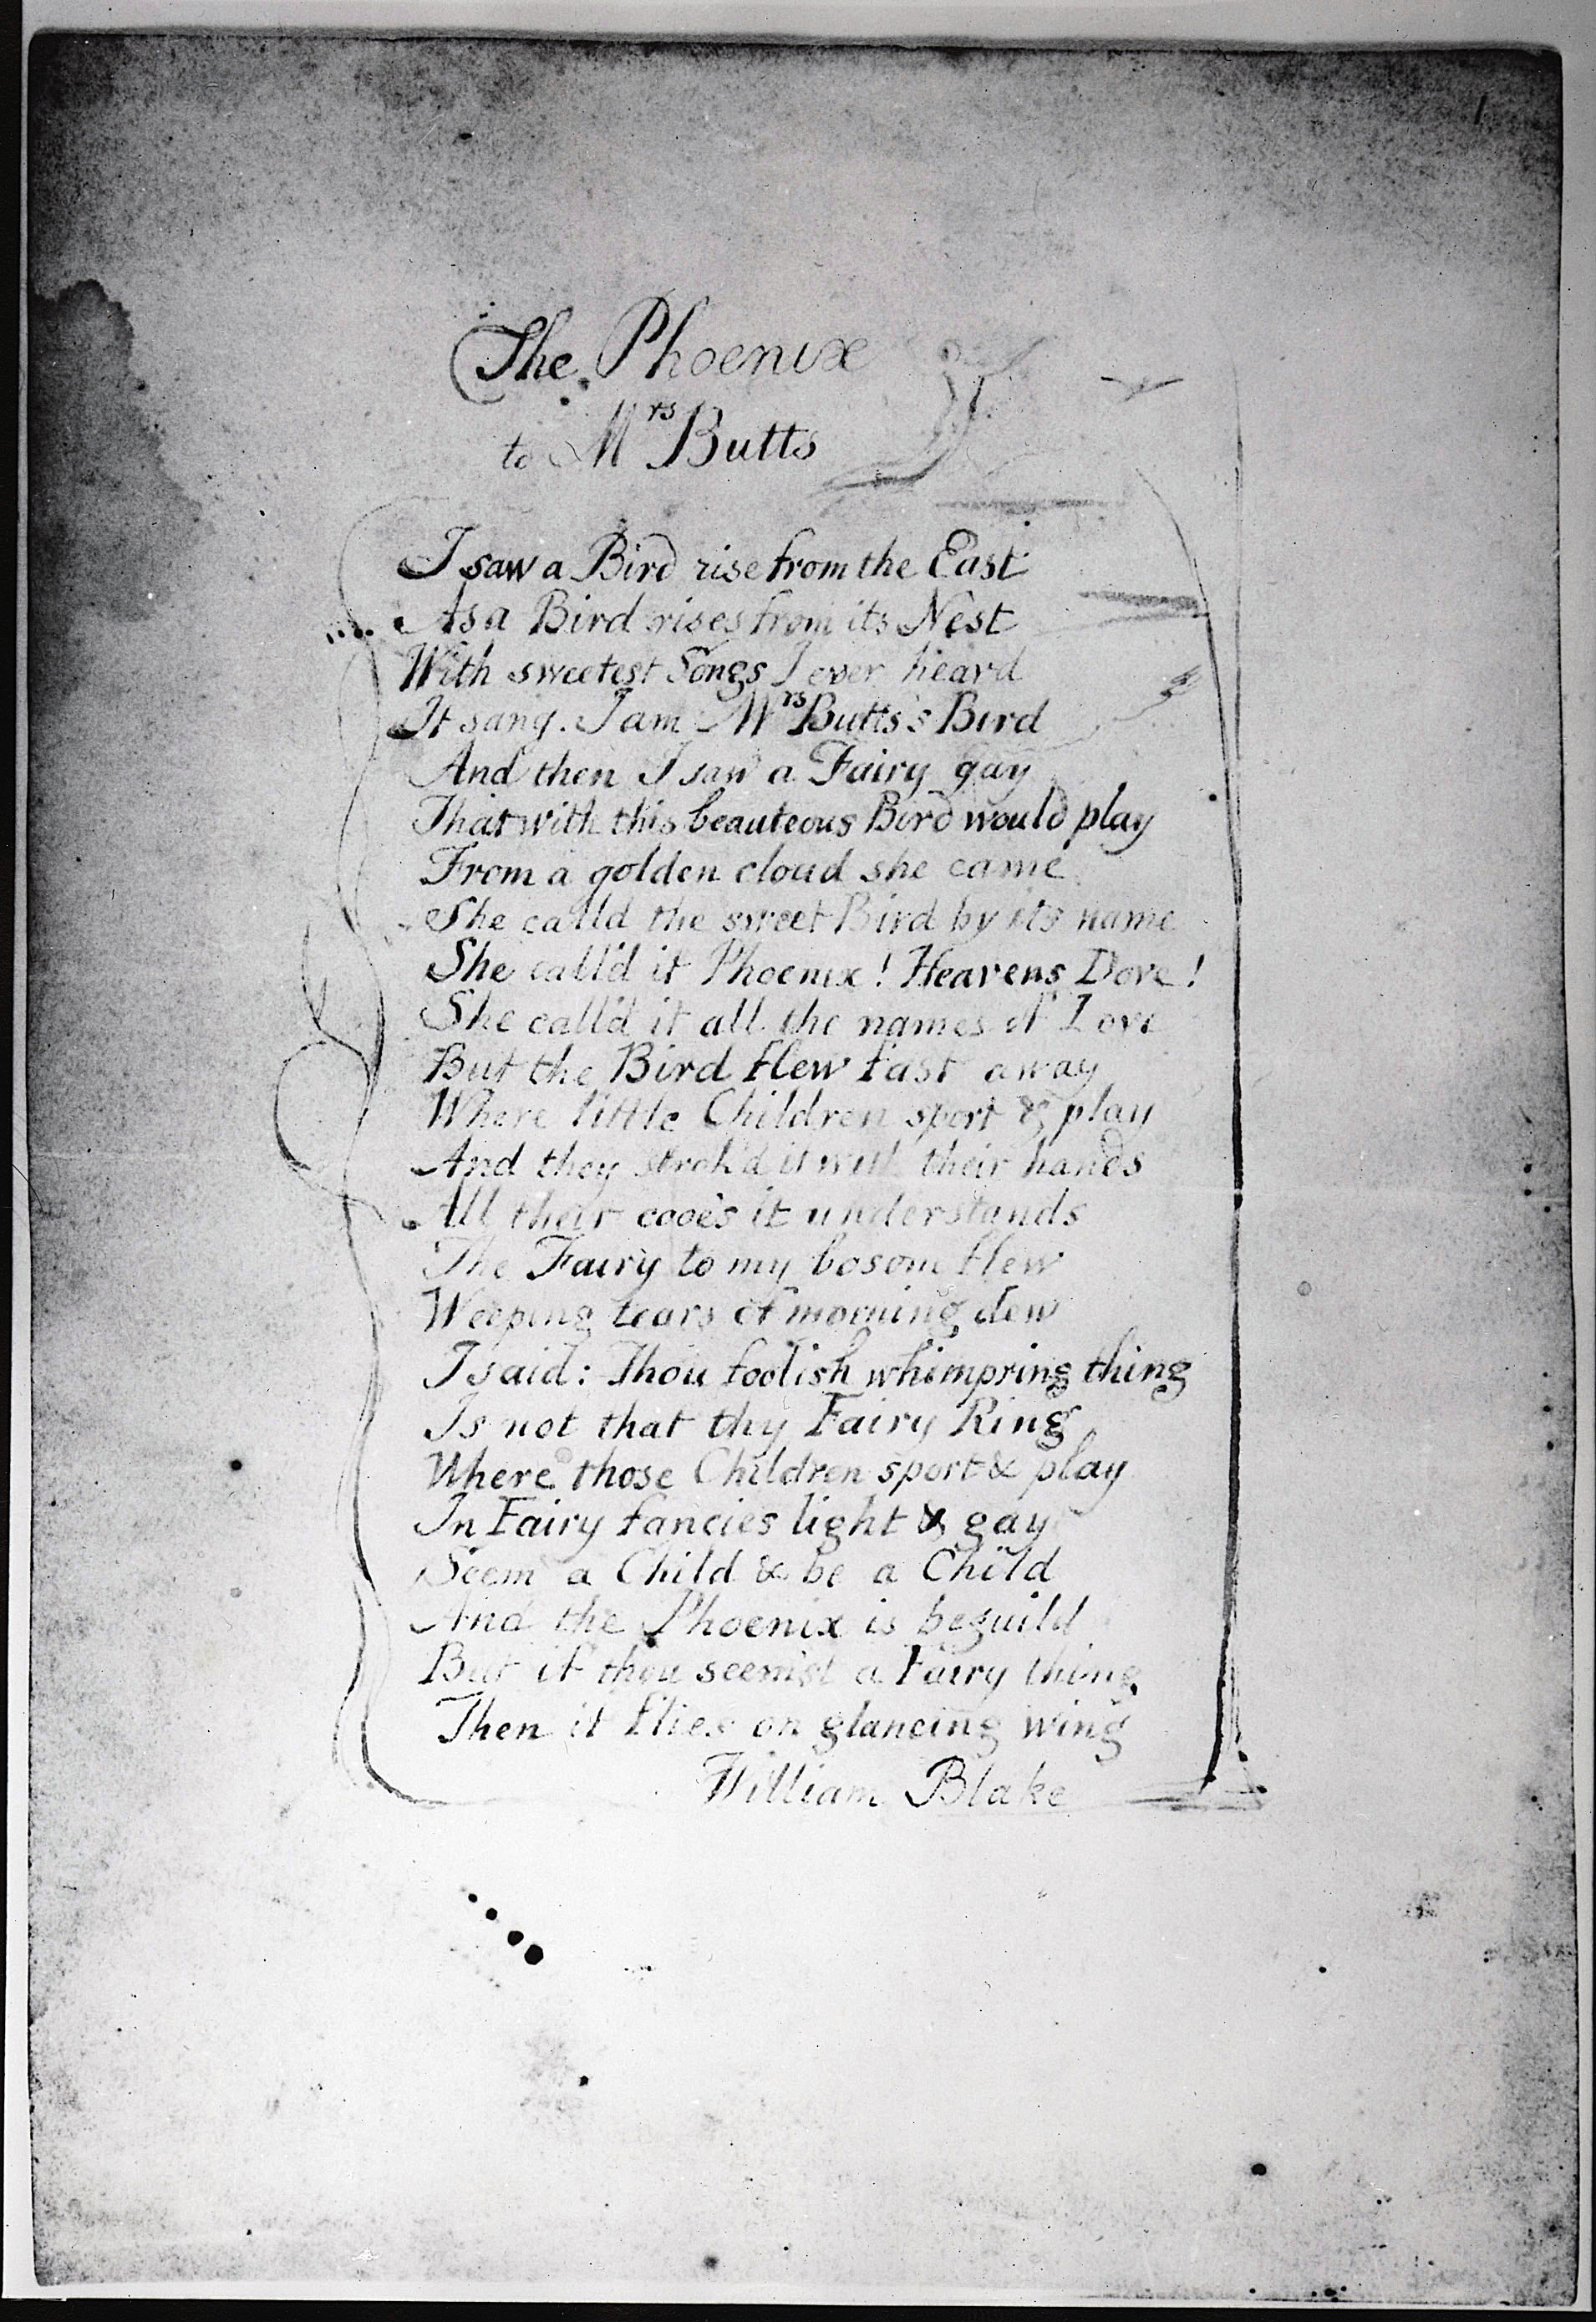 The Phoenix
to Mrs Butts
I saw a Bird rise from the East
As a Bird rises from its Nest
With sweetest Songs I ever heard
It sang. I am Mrs Butts's Bird
And then I saw a Fairy gay
That with this beauteous Bird would play
From a golden cloud she came
She calld the sweet Bird by its name
She call'd it Phoenix! Heavens Dove!
She call'd it all the names of Love
But the Bird flew fast away
Where little Children sport & play
And they strok'd it with their hands
All their cooe's it understands
The Fairy to my bosom flew
Weeping tears of morning dew
I said: Thou foolish whimpring thing
Is not that thy Fairy Ring
Where those Children sport & play
In Fairy fancies light & gay
Seem a Child & be a Child
And the Phoenix is beguild
But if thou seem'st a Fairy thing
Then it flies on glancing wing
William Blake